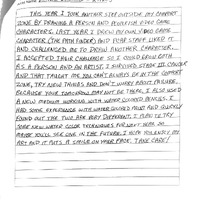 THIS YEAR I TOOK ANOTHER STEP OUTSIDE MY COMFORT
ZONE BY DRAWING A PERSON AND POPULAR VIDEO GAME
CHARACTERS. LAST YEAR I DREW MY OWN VIDEO GAME
CHARACTER (THE PATH FINDER) AND PEAR STAFF LOVED IT
AND CHALLENGED ME TO DREW ANOTHER CHARACTER.
I ACCEPTED THEIR CHALLENGE SO I COULD GROW BOTH
AS A PERSON AND AN ARTIST. I SURVIVED STAGE III CANCER
AND THAT TAUGHT ME YOU CAN'T ALWAYS BE IN THE COMFORT
ZONE, TRY NEW THINGS AND DON'T WORRY ABOUT FAILURE,
BECAUSE YOUR TOMORROW MAY NOT BE THERE. I ALSO USED
A NEW MEDIUM WORKING WITH WATER COLORED PENCILS. I
HAD SOME EXPERIENCE WITH WATER COLORED PAINT AND QUICKLY
FOUND OUT THE TWO ARE VERY DIFFERENT. I PLAN TO TRY
SOME NEW WATER COLOR TECHNIQUES FOR NEXT YEAR SO
MAYBE YOU'LL SEE ONE IN THE FUTURE. I HOPE YOU ENJOY MY
ART AND IT PUTS A SMILE ON YOUR FACE. TAKE CARE!